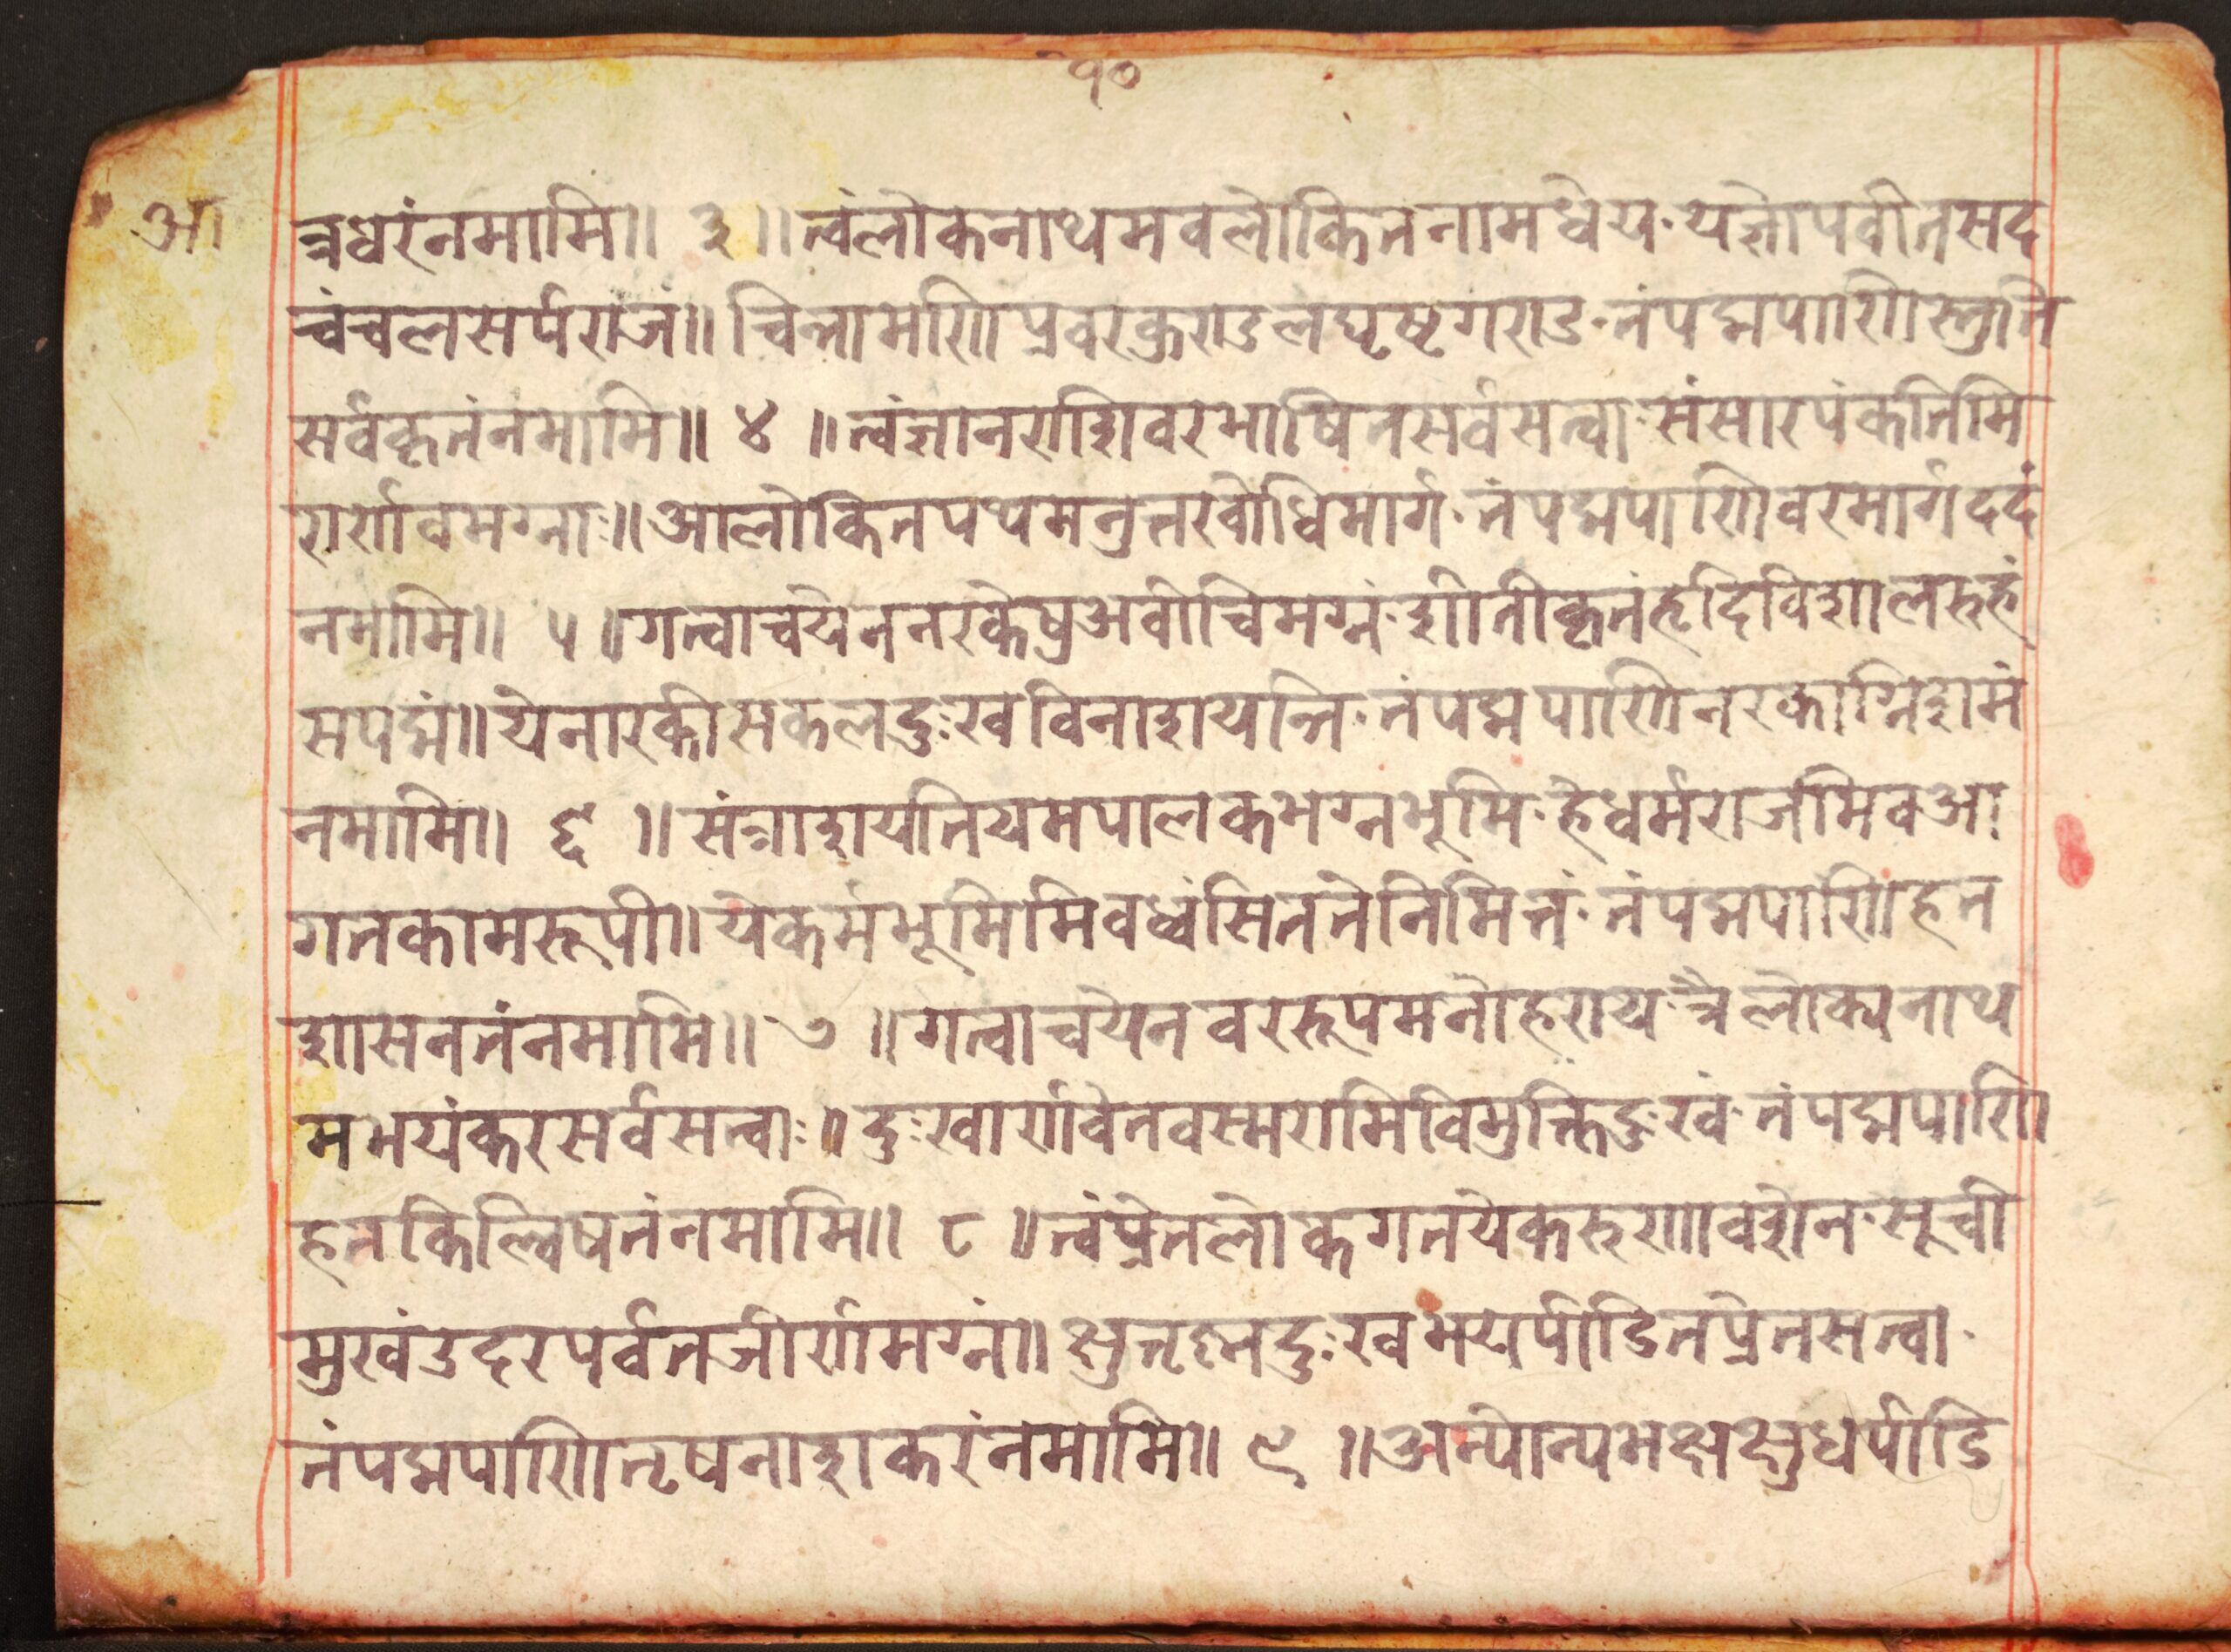 १०
आ
त्रधरंनमामि॥ ३ ॥त्वंलोकनाथमवलोकितनामधेय·यज्ञोपवीतसद
चंचलसर्पराजं॥चिन्तामणिप्रवरकुराडलघृष्टगराड·तंपद्मपाणिस्तुति
सर्वकृतंनमामि॥ ४ ॥त्वंज्ञानराशिवरभाषितसर्वसत्वा·संसारपंकतिमि
रार्णवमग्नाः॥आलोकितपथमनुत्तरबोधिमार्ग·तंपद्मपाणिवरमार्गददं
नमामि॥ ५ ॥गत्वाचयेननरकेषुअवीचिमग्नं·शीतीकृतंहृदिविशालरुहं
सपद्मं॥येनारकीसकलदुःखविनाशयन्ति·तंपद्मपाणिनरकाग्निशमं
नमामि॥ ६ ॥संत्राशयतियमपालकभग्नभूमि·हेधर्मराजमिवआ
गतकामरूपी॥येकर्मभूमिमिवध्वंसिततेनिमित्तं·तंपद्मपाणिहत
शासनतंनमामि॥ ७ ॥गत्वाचयेनवररूपमनोहराय·त्रैलोक्यनाथ
मभयंकरसर्वसत्वाः॥दुःखार्णवेनवस्मरामिविमुक्तिदुःखं·तंपद्मपाणि
हतकिल्विषतंनमामि॥ ८ ॥त्वंप्रेतलोकगतयेकरुणावशेन·सूची
मुखंउदरपर्वतजीर्णमग्नं॥क्षुतृष्नदुःखभयपीडितप्रेतसत्वा·
तंपद्मपाणितृषनाशकरंनमामि॥ ९ ॥अन्योन्यभक्षक्षुधपीडि